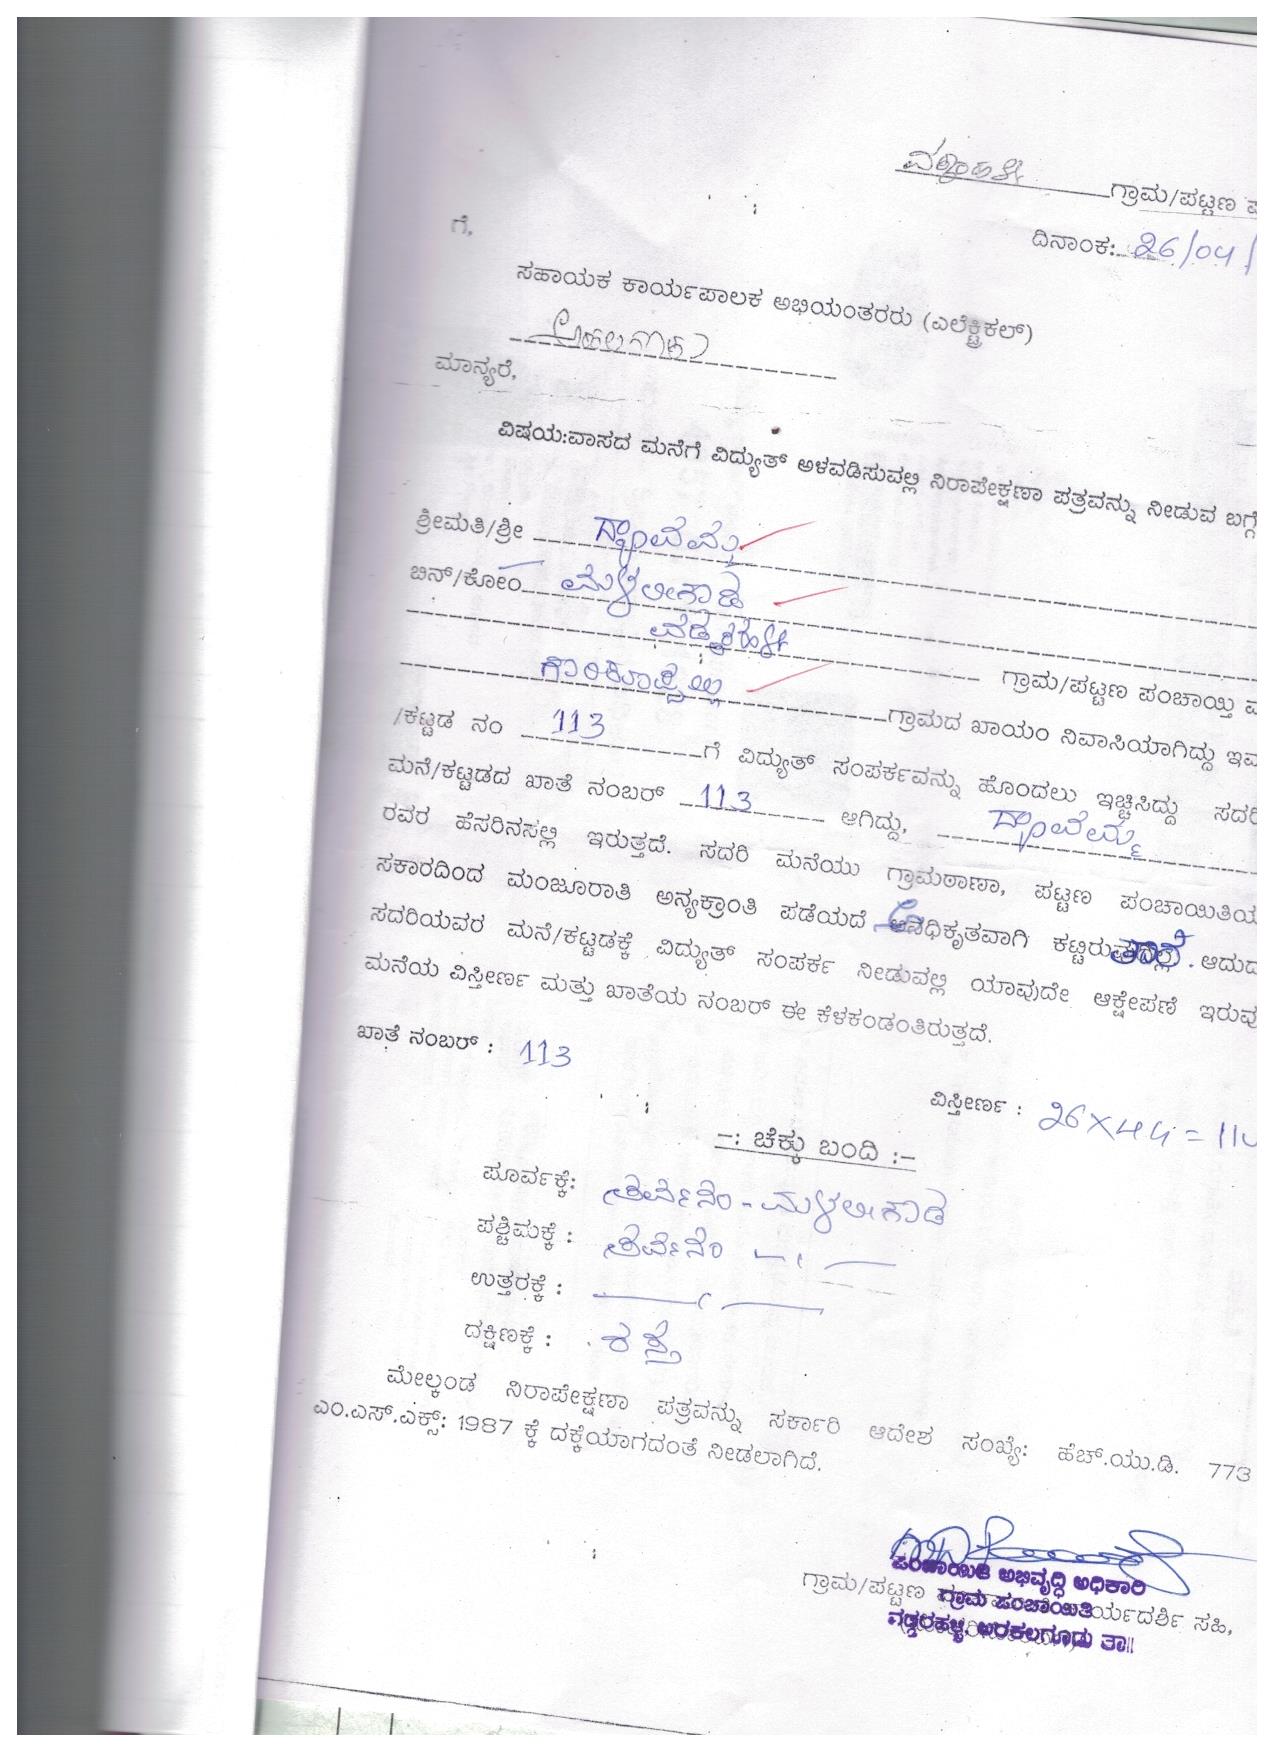 ಗ್ರಾಮ/ಪಟ್ಟಣ
ದಿನಾಂಕ: 26/04/
ಗೆ,
ಸಹಾಯಕ ಕಾರ್ಯಪಾಲಕ ಅಭಿಯಂತರರು (ಎಲೆಕ್ಟ್ರಿಕಲ್)
ಮಾನ್ಯರೆ,
ವಿಷಯ:ವಾಸದ ಮನೆಗೆ ವಿದ್ಯುತ್ ಅಳವಡಿಸುವಲ್ಲಿ ನಿರಾಪೇಕ್ಷಣಾ ಪತ್ರವನ್ನು ನೀಡುವ ಬಗ್ಗೆ
ಶ್ರೀಮತಿ/ಶ್ರೀ ದ್ಯಾವಮ್ಮ
ಬಿನ್/ಕೋಂ ಮಳಲೀಗೌಡ
ವಡ್ಡರಹಳ್ಳಿ ಗ್ರಾಮ/ಪಟ್ಟಣ ಪಂಚಾಯ್ತಿ
ಗ್ರಾಮದ ಖಾಯಂ ನಿವಾಸಿಯಾಗಿದ್ದು ಇವ
/ಕಟ್ಟಡ ನಂ 113 ಗೆ ವಿದ್ಯುತ್ ಸಂಪರ್ಕವನ್ನು ಹೊಂದಲು ಇಚ್ಚಿಸಿದ್ದು ಸದರಿ
ಮನೆ/ಕಟ್ಟಡದ ಖಾತೆ ನಂಬರ್ 113 ಆಗಿದ್ದು, ದ್ಯಾವಮ್ಮ
ರವರ ಹೆಸರಿನಸಲ್ಲಿ ಇರುತ್ತದೆ. ಸದರಿ ಮನೆಯು ಗ್ರಾಮಠಾಣಾ, ಪಟ್ಟಣ ಪಂಚಾಯಿತಿಯ
ಸಕಾರದಿಂದ ಮಂಜೂರಾತಿ ಅನ್ಯಕ್ರಾಂತಿ ಪಡೆಯದೆ ಅನಧಿಕೃತವಾಗಿ ಕಟ್ಟಿರು ಆದುದ
ಸದರಿಯವರ ಮನೆ/ಕಟ್ಟಡಕ್ಕೆ ವಿದ್ಯುತ್ ಸಂಪರ್ಕ ನೀಡುವಲ್ಲಿ ಯಾವುದೇ ಆಕ್ಷೇಪಣೆ ಇರುವು
ಮನೆಯ ವಿಸ್ತೀರ್ಣ ಮತ್ತು ಖಾತೆಯ ನಂಬರ್ ಈ ಕೆಳಕಂಡಂತಿರುತ್ತದೆ.
ಖಾತೆ ನಂಬರ್ : 113
ವಿಸ್ತೀರ್ಣ : 26 X 44 = 11
-: ಚೆಕ್ಕು ಬಂದಿ :-
ಪೂರ್ವಕ್ಕೆ: ಮಳಲೀಗೌಡ
ಪಶ್ಚಿಮಕ್ಕೆ :
ಉತ್ತರಕ್ಕೆ :
ದಕ್ಷಿಣಕ್ಕೆ : ರಸ್ತೆ
ಮೇಲ್ಕಂಡ ನಿರಾಪೇಕ್ಷಣಾ ಪತ್ರವನ್ನು ಸರ್ಕಾರಿ ಆದೇಶ ಸಂಖ್ಯೆ: ಹೆಚ್.ಯು.ಡಿ. 773
ಎಂ.ಎಸ್.ಎಕ್ಸ್: 1987 ಕ್ಕೆ ದಕ್ಕೆಯಾಗದಂತೆ ನೀಡಲಾಗಿದೆ.
ಪಂಚಾಯಿತಿ ಅಭಿವೃದ್ಧಿ ಅಧಿಕಾರಿ
ಗ್ರಾಮ ಪಂಚಾಯಿತಿ
ಗ್ರಾಮ/ಪಟ್ಟಣ ರ್ಯದರ್ಶಿ ಸಹಿ,
ವಡ್ಡರಹಳ್ಳಿ, ಅರಕಲಗೂಡು ತಾ||